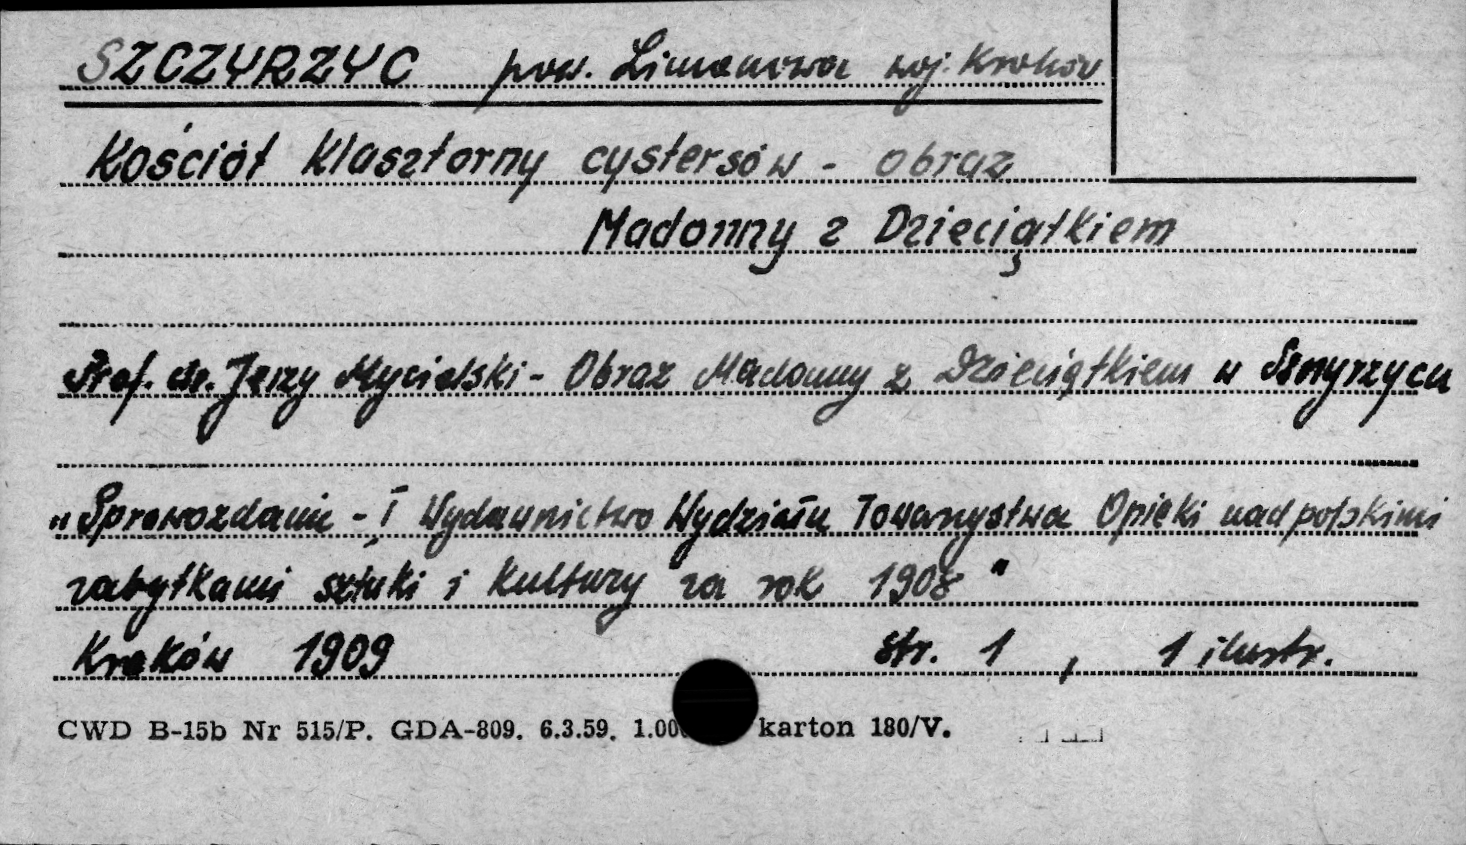 SZCZYRZYC pow. Limanowa woj. Kraków
Kościół Klasztorny cystersów - obraz
Madonny z Dzieciątkiem
Prof. dr. Jerzy Mycielski - Obraz Madonny z Dzieciątkiem w Szczyrzycu
„Sprawozdanie - i Wydawnictwo Wydziału Towarzystwa Opieki nad polskimi
zabytkami sztuki i kultury za rok 1908"
Kraków 1909 str. 1 , 1 ilustr.
CWD B-15b Nr 515/P. GDA-809. 6.3.59. 1.00 karton 180/V.